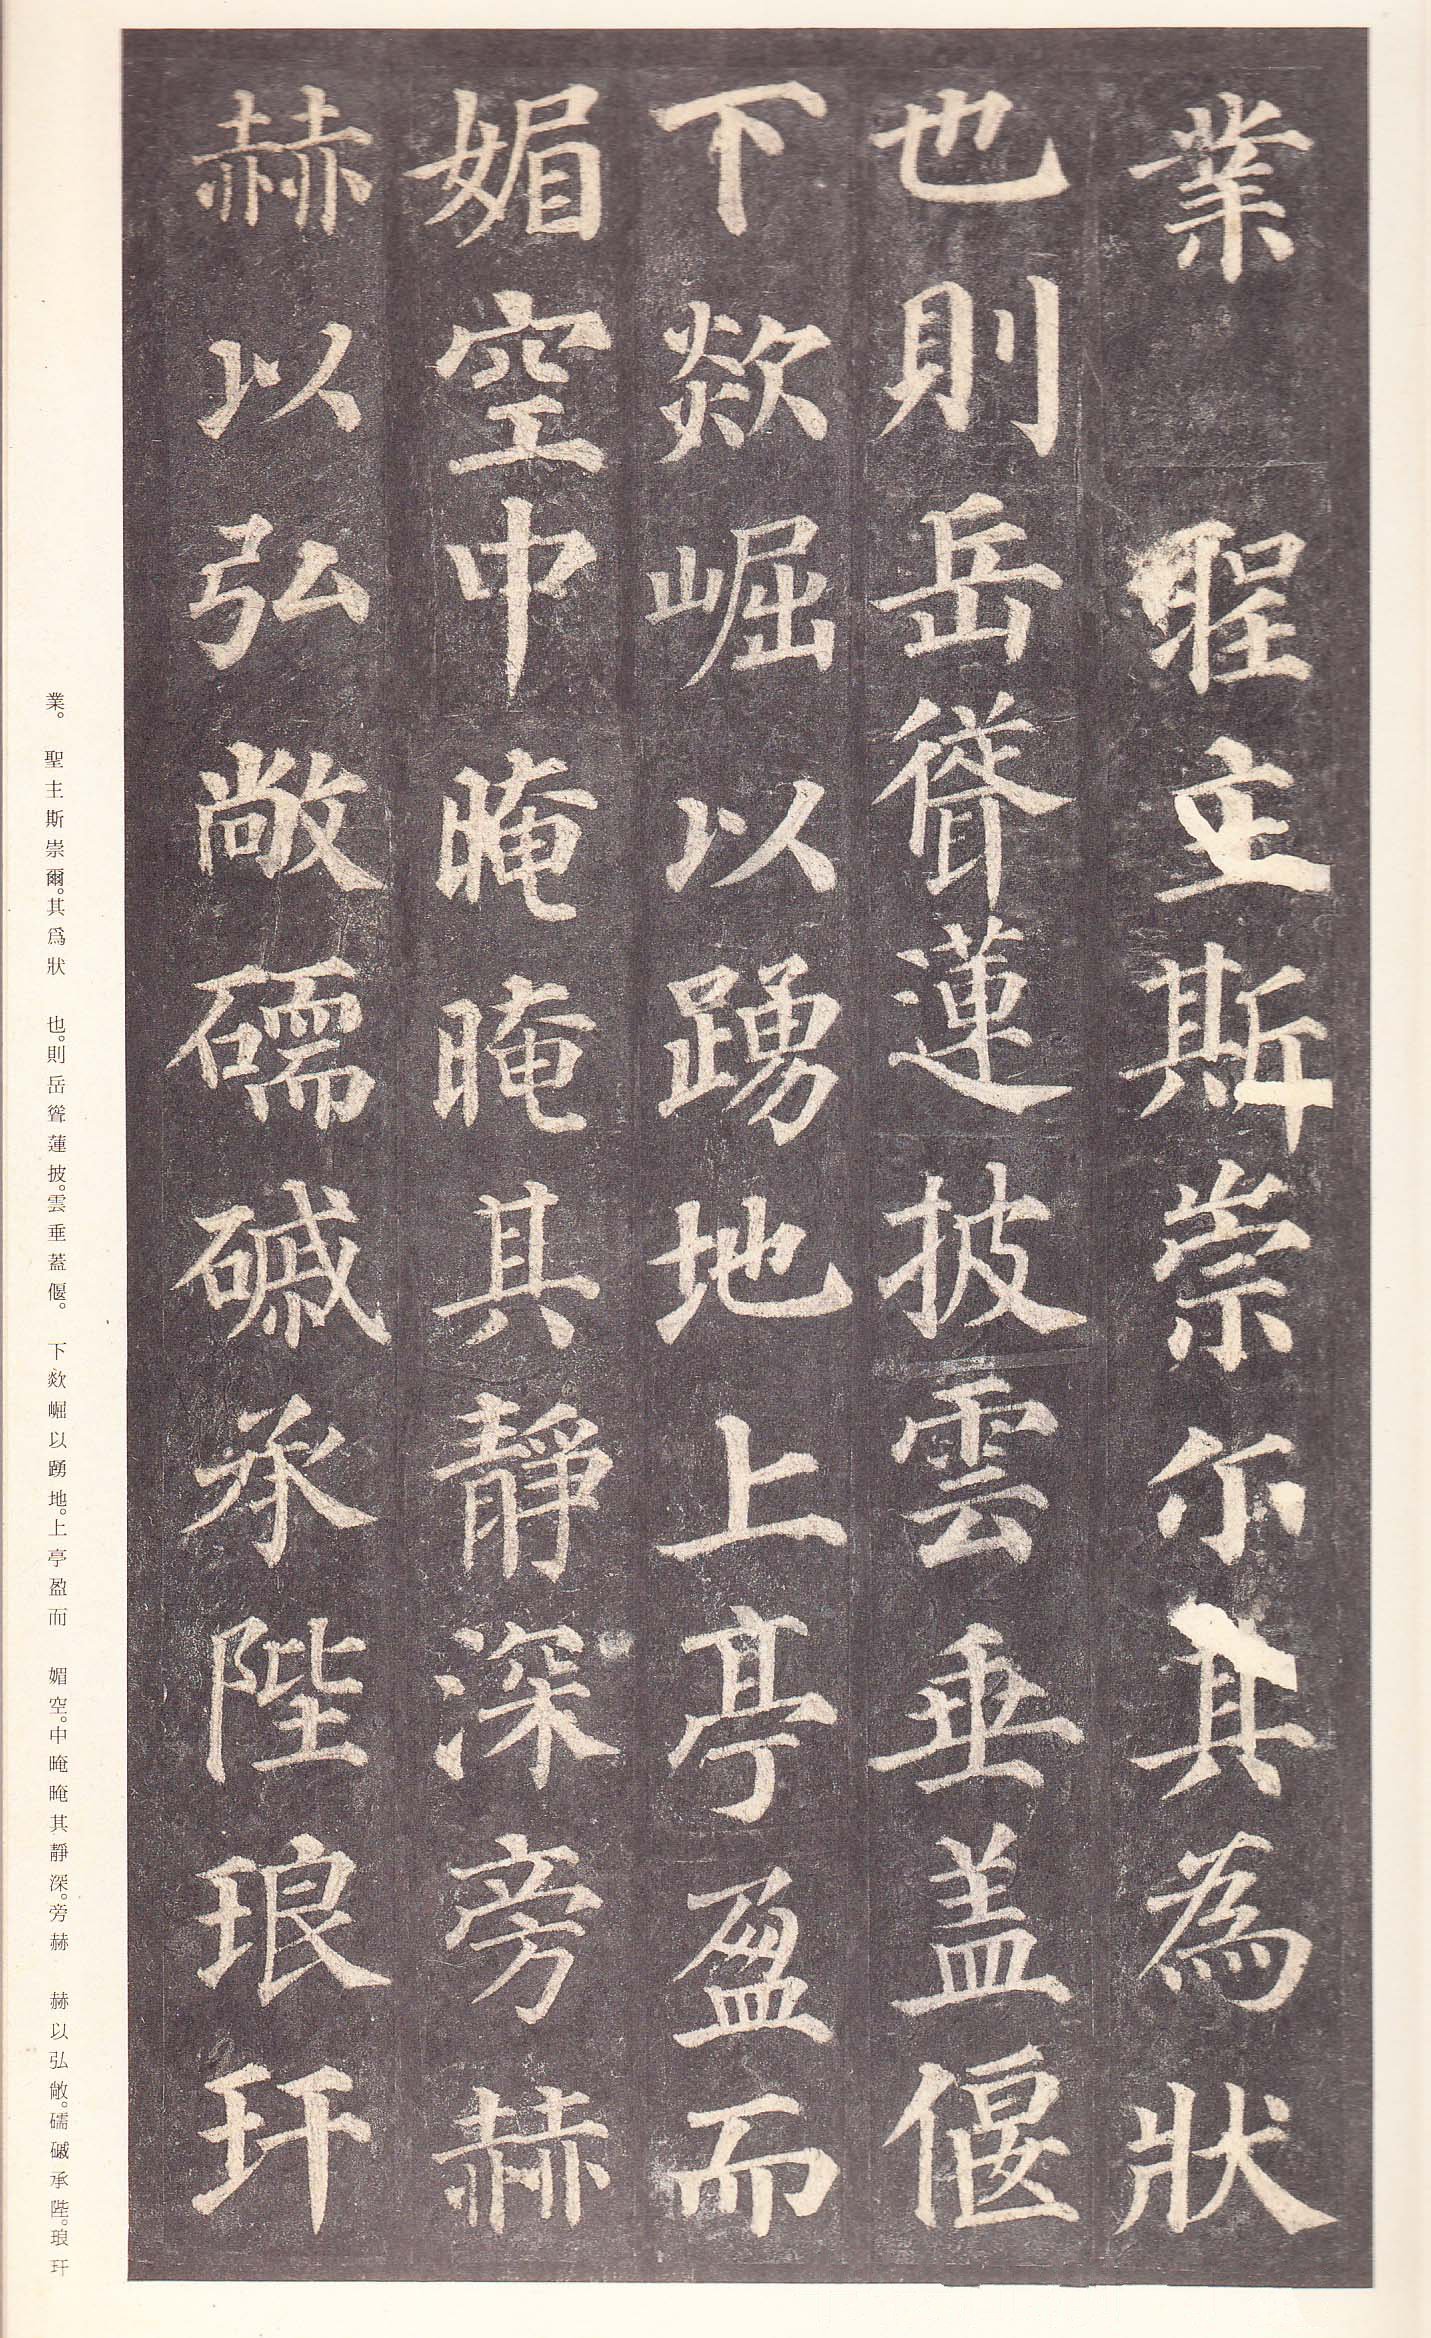 業　聖主斯崇尓其為狀
也則岳聳蓮披雲垂盖偃
下欻崛以踴地上亭盈而
媚空中晻晻其靜深旁赫
赫以弘敞礝磩承陛琅玕
業。　聖主斯崇爾。其爲狀　也。則岳聳蓮披。雲垂蓋偃。　下欻崛以踴地。上亭盈而　媚空。中晻晻其靜深。旁赫　赫以弘敞。礝磩承陛。琅玕